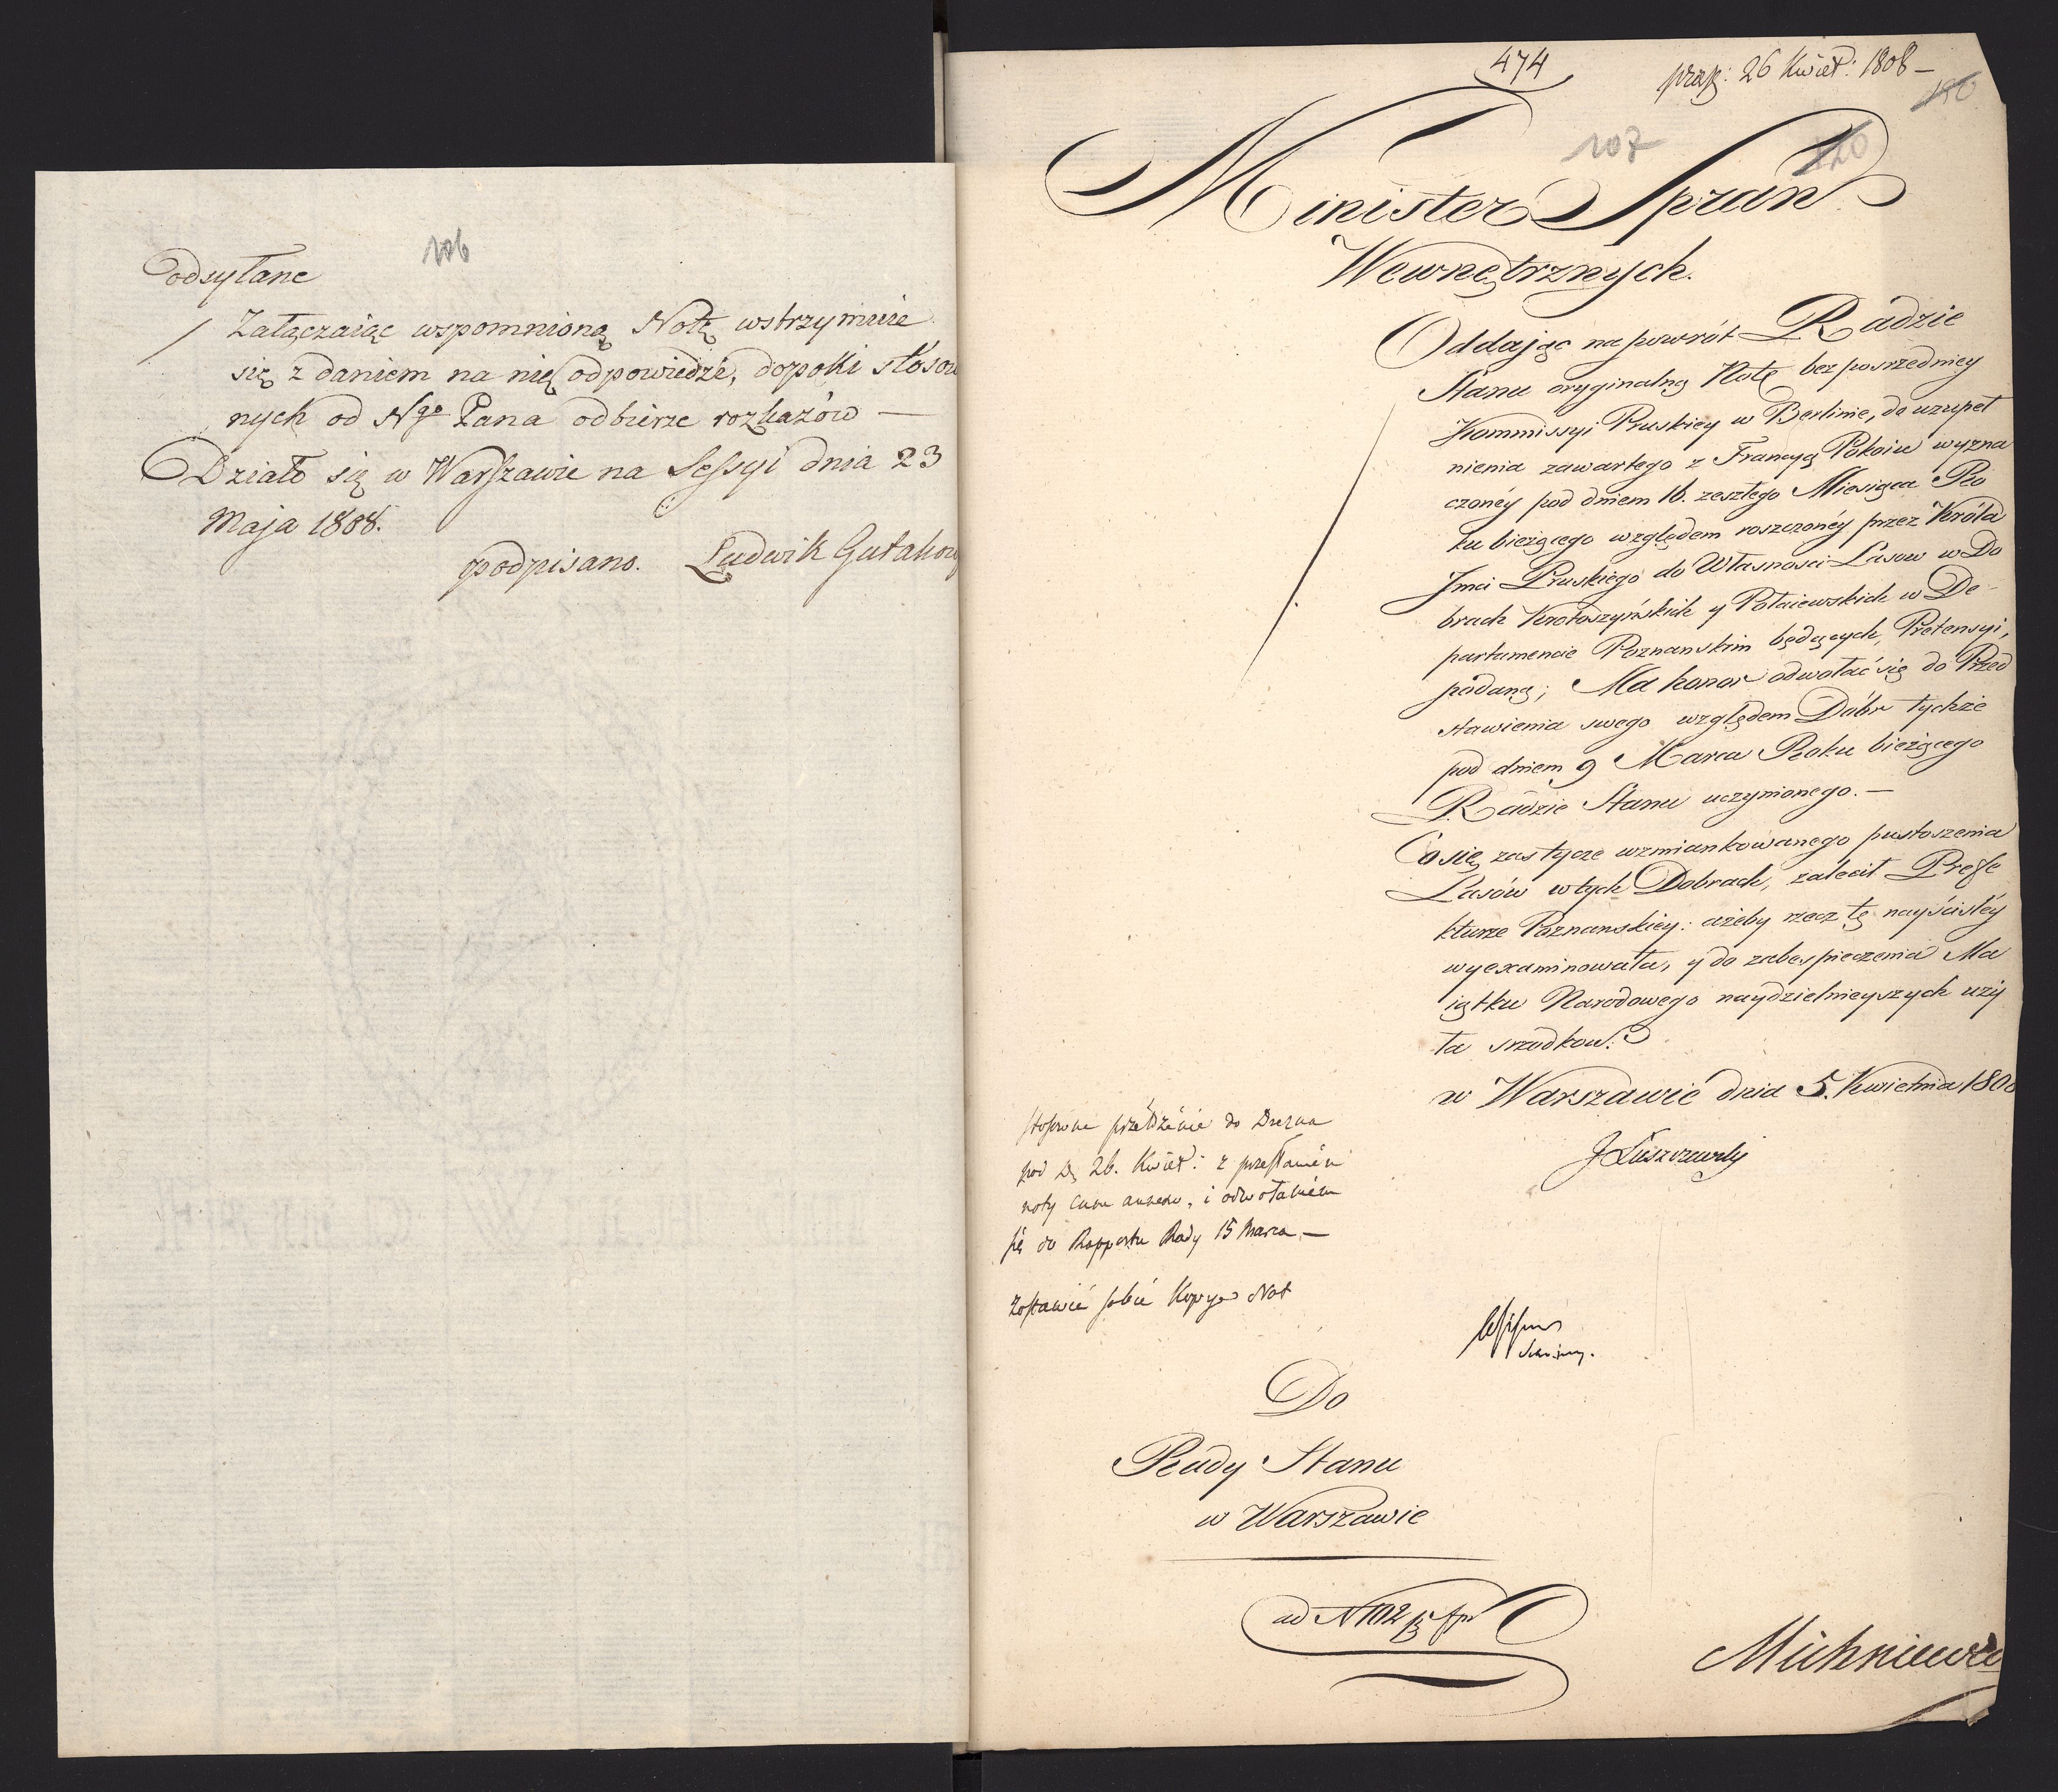 106
odsyłane
Załączaiąc wspomnioną Notę wstrzymuie
się z daniem na nię odpowiedzi, dopoki stosow
nych od Ngo Pana odbierze rozkazów —
Działo się w Warszawie na Sessyi dnia 23
Maja 1808.
podpisano. Ludwik Gutakow
474
praes: 26 Kwiet: 1808 —
150
107
120
Minister Spraw
Wewnętrznych.
Oddając na powrót Radzie
Stanu oryginalną Notę bezposrzedniey
Kommissyi Pruskiey w Berlinie, do uzupeł
nienia zawartego z Francyą Pokoiu wyzna
czonéy pod dniem 16. zeszłego Miesiąca Ro
ku bieżącego względem roszczonéy przez Króla
Jmci Pruskiego do Własnosci Lasow w Do
brach Krotoszyńskich y Połaiewskich w De-
partamencie Poznanskim będących, Pretensyi,
podaną; Ma honor odwołać się do Przed
stawienia swego względem Dóbr tychże
pod dniem 9 Marca Roku bieżącego
Radzie Stanu uczynionego. —
Co się zas tycze wzmiankowanego pustoszenia
Lasów w tych Dobrach, zalecił Prefe
kturze Poznanskiey: ażeby rzecz tę nayściśléy
wyexaminowała, y do zabespieczenia Ma
iątku Narodowego naydzielnieyszych uży
ła srzodkow.
w Warszawie dnia 5. Kwietnia 1808
J Łuszczewski
Stosowne przełożenie do Drezna
pod D. 26. Kwiet: z przesłaniem
noty cum annexo, i odwołaniem
się do Rapportu Rady 15 Marca —
Zostawić sobie Kopye Not
Do
Rady Stanu
w Warszawie
ad N 102
Michniewic